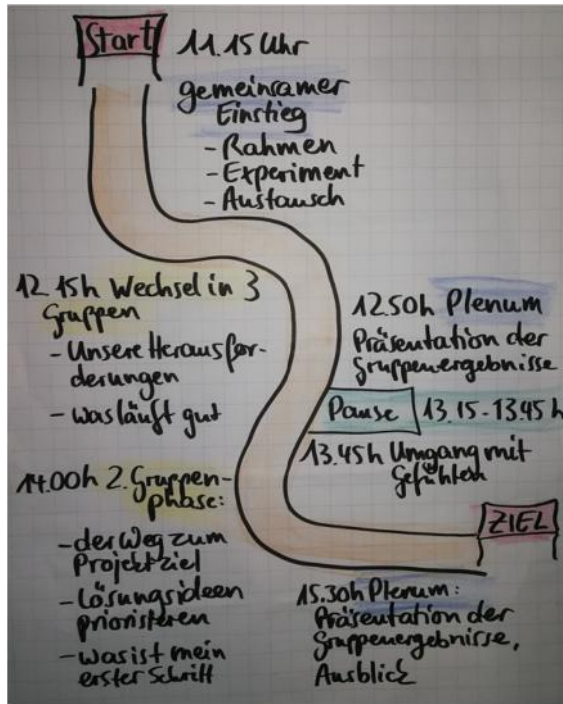 Start
11.15 Uhr
gemeinsamer
Einstieg
- Rahmen
- Experiment
- Austausch
12.15h Wechsel in 3
Gruppen
- Unsere Herausfor-
derungen
- was läuft gut
12.50h Plenum
Präsentation der
Gruppenergebnisse
Pause 13.15-13.45h
13.45h Umgang mit
Gefühlen
14.00h 2. Gruppen-
phase:
- der Weg zum
Projektziel
- Lösungsideen
priorisieren
- was ist mein
erster Schritt
ZIEL
15.30h Plenum:
Präsentation der
Gruppenergebnisse,
Ausblick